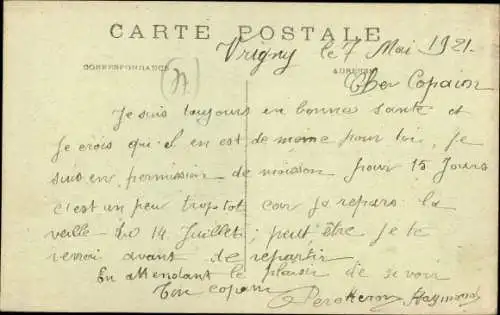 CARTE POSTALE
Vrigny le 7 Mai 1921.
CORRESPONDANCE
ADRESSE
Cher Copain
Je suis toujours en bonne santé et
je crois qu'il en est de meme pour toi, je
suis en permission de moisson pour 15 Jours
c'est un peu trop tot car je repars la
veille du 14 Juillet, peut être je te
verrai avant de repartir
En attendant le plaisir de se voir
Ton copain
Raymond